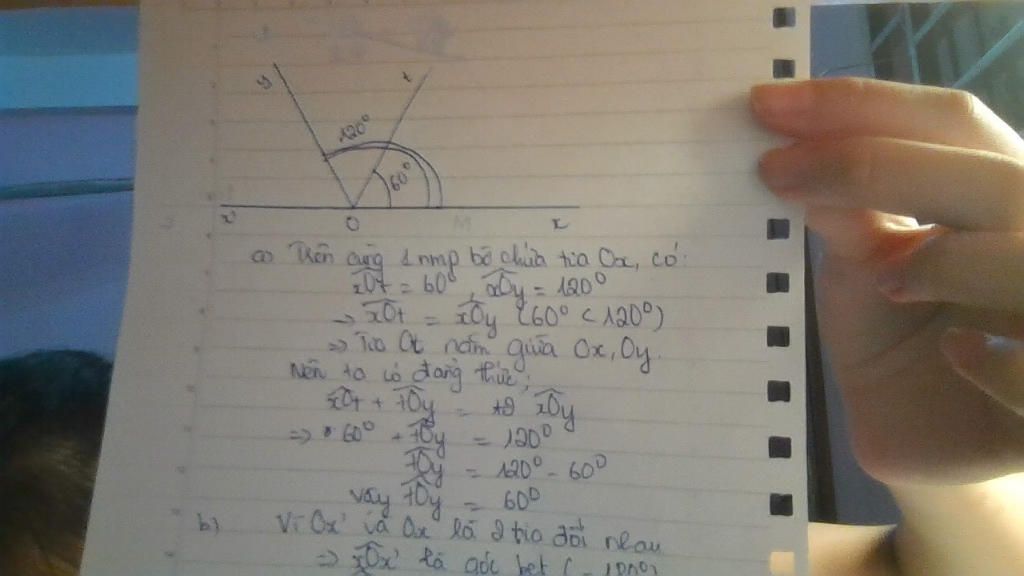 y
t
120°
60°
x'
O
M
x
a) Trên cùng 1 nmp bờ chứa tia Ox, có:
xOt = 60°, xOy = 120°
⇒ xOt = xOy (60° < 120°)
⇒ Tia Ot nằm giữa Ox, Oy.
Nên ta có đẳng thức:
xOt + tOy = xOy
⇒ 60° + tOy = 120°
tOy = 120° - 60°
Vậy tOy = 60°
b) Vì Ox' và Ox là 2 tia đối nhau
⇒ xOx' là góc bẹt (= 180°)